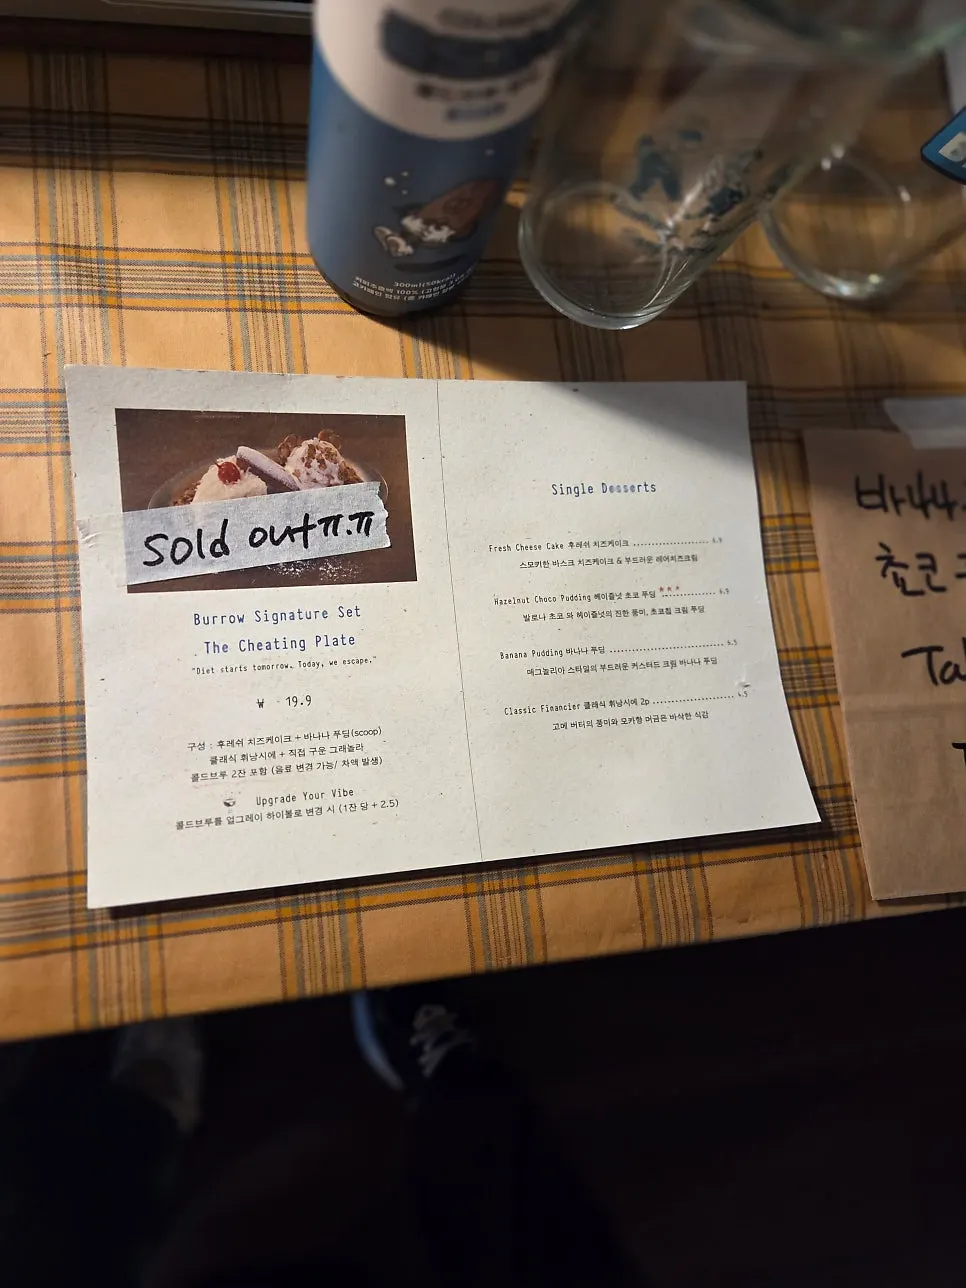 300ml(50kcal)
Sold out ㅠ.ㅠ
Burrow Signature Set
The Cheating Plate
"Diet starts tomorrow. Today, we escape."
₩ 19.9
구성 : 후레쉬 치즈케이크 + 바나나 푸딩(scoop)
클래식 휘낭시에 + 직접 구운 그래놀라
콜드브루 2잔 포함 (음료 변경 가능/ 차액 발생)
Upgrade Your Vibe
콜드브루를 얼그레이 하이볼로 변경 시 (1잔 당 + 2.5)
Single Desserts
Fresh Cheese Cake 후레쉬 치즈케이크 .................... 6.9
스모키한 바스크 치즈케이크 & 부드러운 레어치즈크림
Hazelnut Choco Pudding 헤이즐넛 초코 푸딩 ★★★ .............. 6.9
발로나 초코 와 헤이즐넛의 진한 풍미, 초코칩 크림 푸딩
Banana Pudding 바나나 푸딩 .............................. 6.5
매그놀리아 스타일의 부드러운 커스터드 크림 바나나 푸딩
Classic Financier 클래식 휘낭시에 2p ..................... 4.5
고메 버터의 풍미와 모카향 머금은 바삭한 식감
바나나
초코